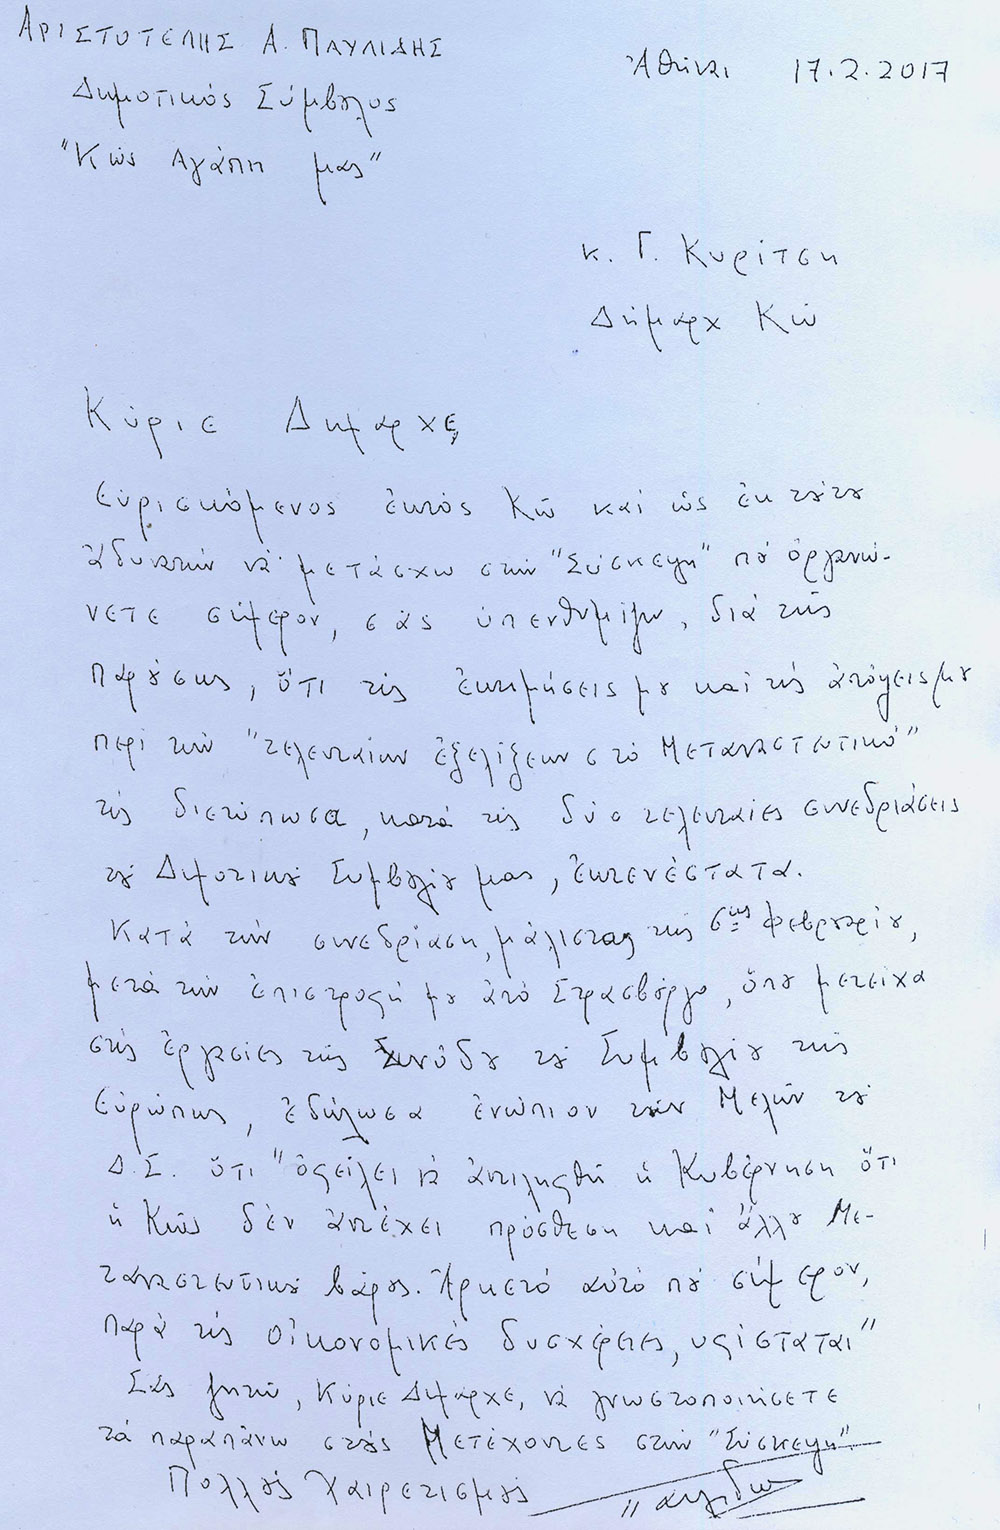 ΑΡΙΣΤΟΤΕΛΗΣ Α. ΠΑΥΛΙΔΗΣ
Ἀθῆναι 17.2.2017
Δημοτικός Σύμβουλος
"Κώς Αγάπη μας"
κ. Γ. Κυρίτση
Δήμαρχ Κῶ
Κύριε Δημαρχε,
Εὑρισκόμενος ἐκτός Κῶ καί ὡς ἐκ τούτου
ἀδυνατῶν νά μετάσχω στήν "Σύσκεψη" πού ὀργανώ-
νετε σήμερον, σάς ὑπενθυμίζω, διά τῆς
παρούσης, ὅτι τίς ἐκτιμήσεις μου καί τίς ἀπόψεις μου
περί τῶν "τελευταίων ἐξελίξεων στό Μεταναστευτικό"
τίς διετύπωσα, κατά τίς δύο τελευταίες συνεδριάσεις
τού Δημοτικού Συμβουλίου μας, ἐκτενέστατα.
Κατά τήν συνεδρίαση, μάλιστα, τῆς 6ης Φεβρουαρίου,
μετά τήν ἐπιστροφή μου ἀπό Στρασβούργο, ὅπου μετείχα
στίς ἐργασίες τῆς Συνόδου τού Συμβουλίου τῆς
Εὐρώπης, ἐδήλωσα ἐνώπιον τῶν Μελῶν τού
Δ.Σ. ὅτι "ὀφείλει νά ἀντιληφθῆ ἡ Κυβέρνηση ὅτι
ἡ Κῶς δέν ἀντέχει πρόσθεση καί ἄλλου Με-
ταναστευτικού βάρους. Ἀρκετό αὐτό πού σήμερον,
παρά τίς οἰκονομικές δυσχέρειες, υφίσταται"
Σάς ζητῶ, Κύριε Δήμαρχε, νά γνωστοποιήσετε
τά παραπάνω στούς Μετέχοντες στήν "Σύσκεψη"
Πολλούς Χαιρετισμούς